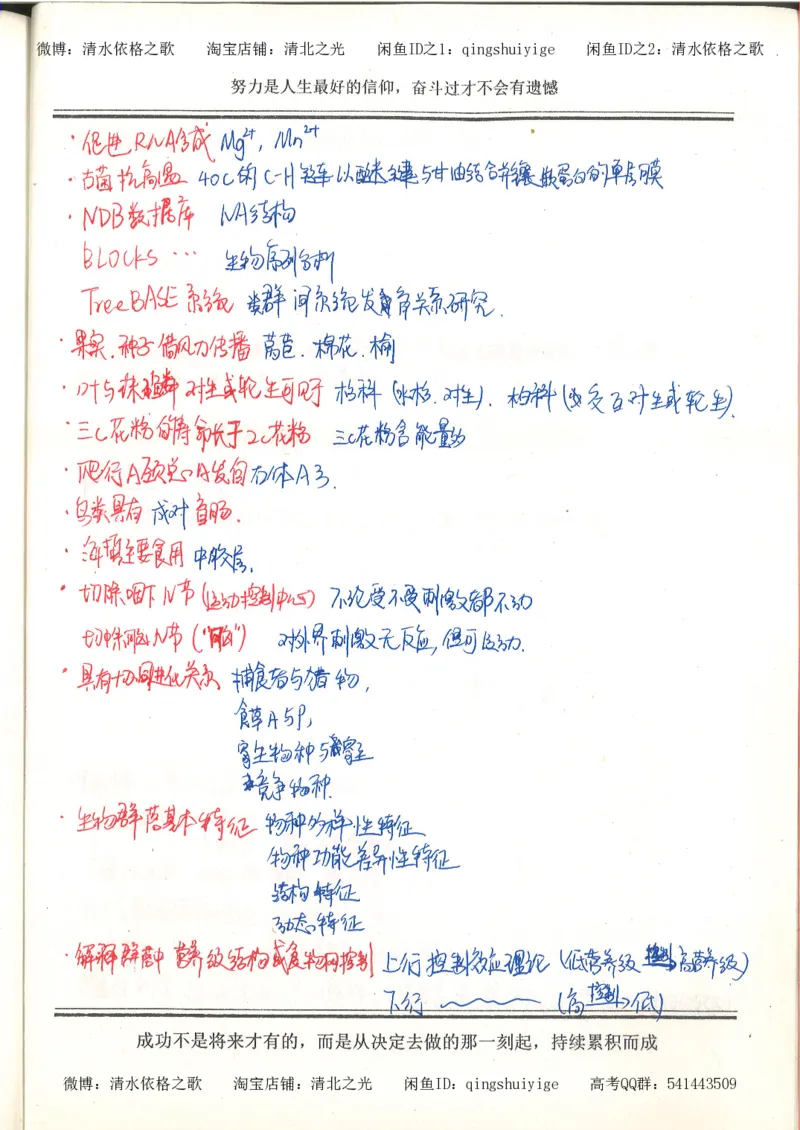 微博：清水依格之歌 淘宝店铺：清北之光 闲鱼ID之1：qingshuiyige 闲鱼ID之2：清水依格之歌
努力是人生最好的信仰，奋斗过才不会有遗憾
·促进RNA合成 Mg²⁺, Mn²⁺
·古菌抗高温 40C的C-H链以醚键与甘油结合并镶嵌蛋白的单层膜
·NDB数据库 NA结构
BLOCKS … 生物序列分析
TreeBASE系统 类群间系统发育关系研究.
·果实.种子借风力传播 莴苣.棉花.榆
·叶与珠鳞对生或轮生可见于 杉科(水杉.对生). 柏科(交互对生或轮生).
·三C花粉的寿命长于2C花粉 三C花粉含能量
·爬行A颈总A发自右体A弓.
·鸟类具有成对盲肠.
·海蜇主要食用中胶层.
·切除咽下N节(运动控制中心) 不论受不受刺激都不动
切除脑N节("脑") 对外界刺激无反应,但可运动.
·具有协同进化关系 捕食者与猎物,
食草A与P,
寄生物种与寄主
竞争物种.
·生物群落基本特征 物种多样性特征
物种功能差异性特征
结构特征
动态特征
·解释群落中营养级结构或食物网控制 上行控制效应理论(低营养级 控制→高营养级)
下行 (高 控制→低)
成功不是将来才有的，而是从决定去做的那一刻起，持续累积而成
微博：清水依格之歌 淘宝店铺：清北之光 闲鱼ID：qingshuiyige 高考QQ群：541443509